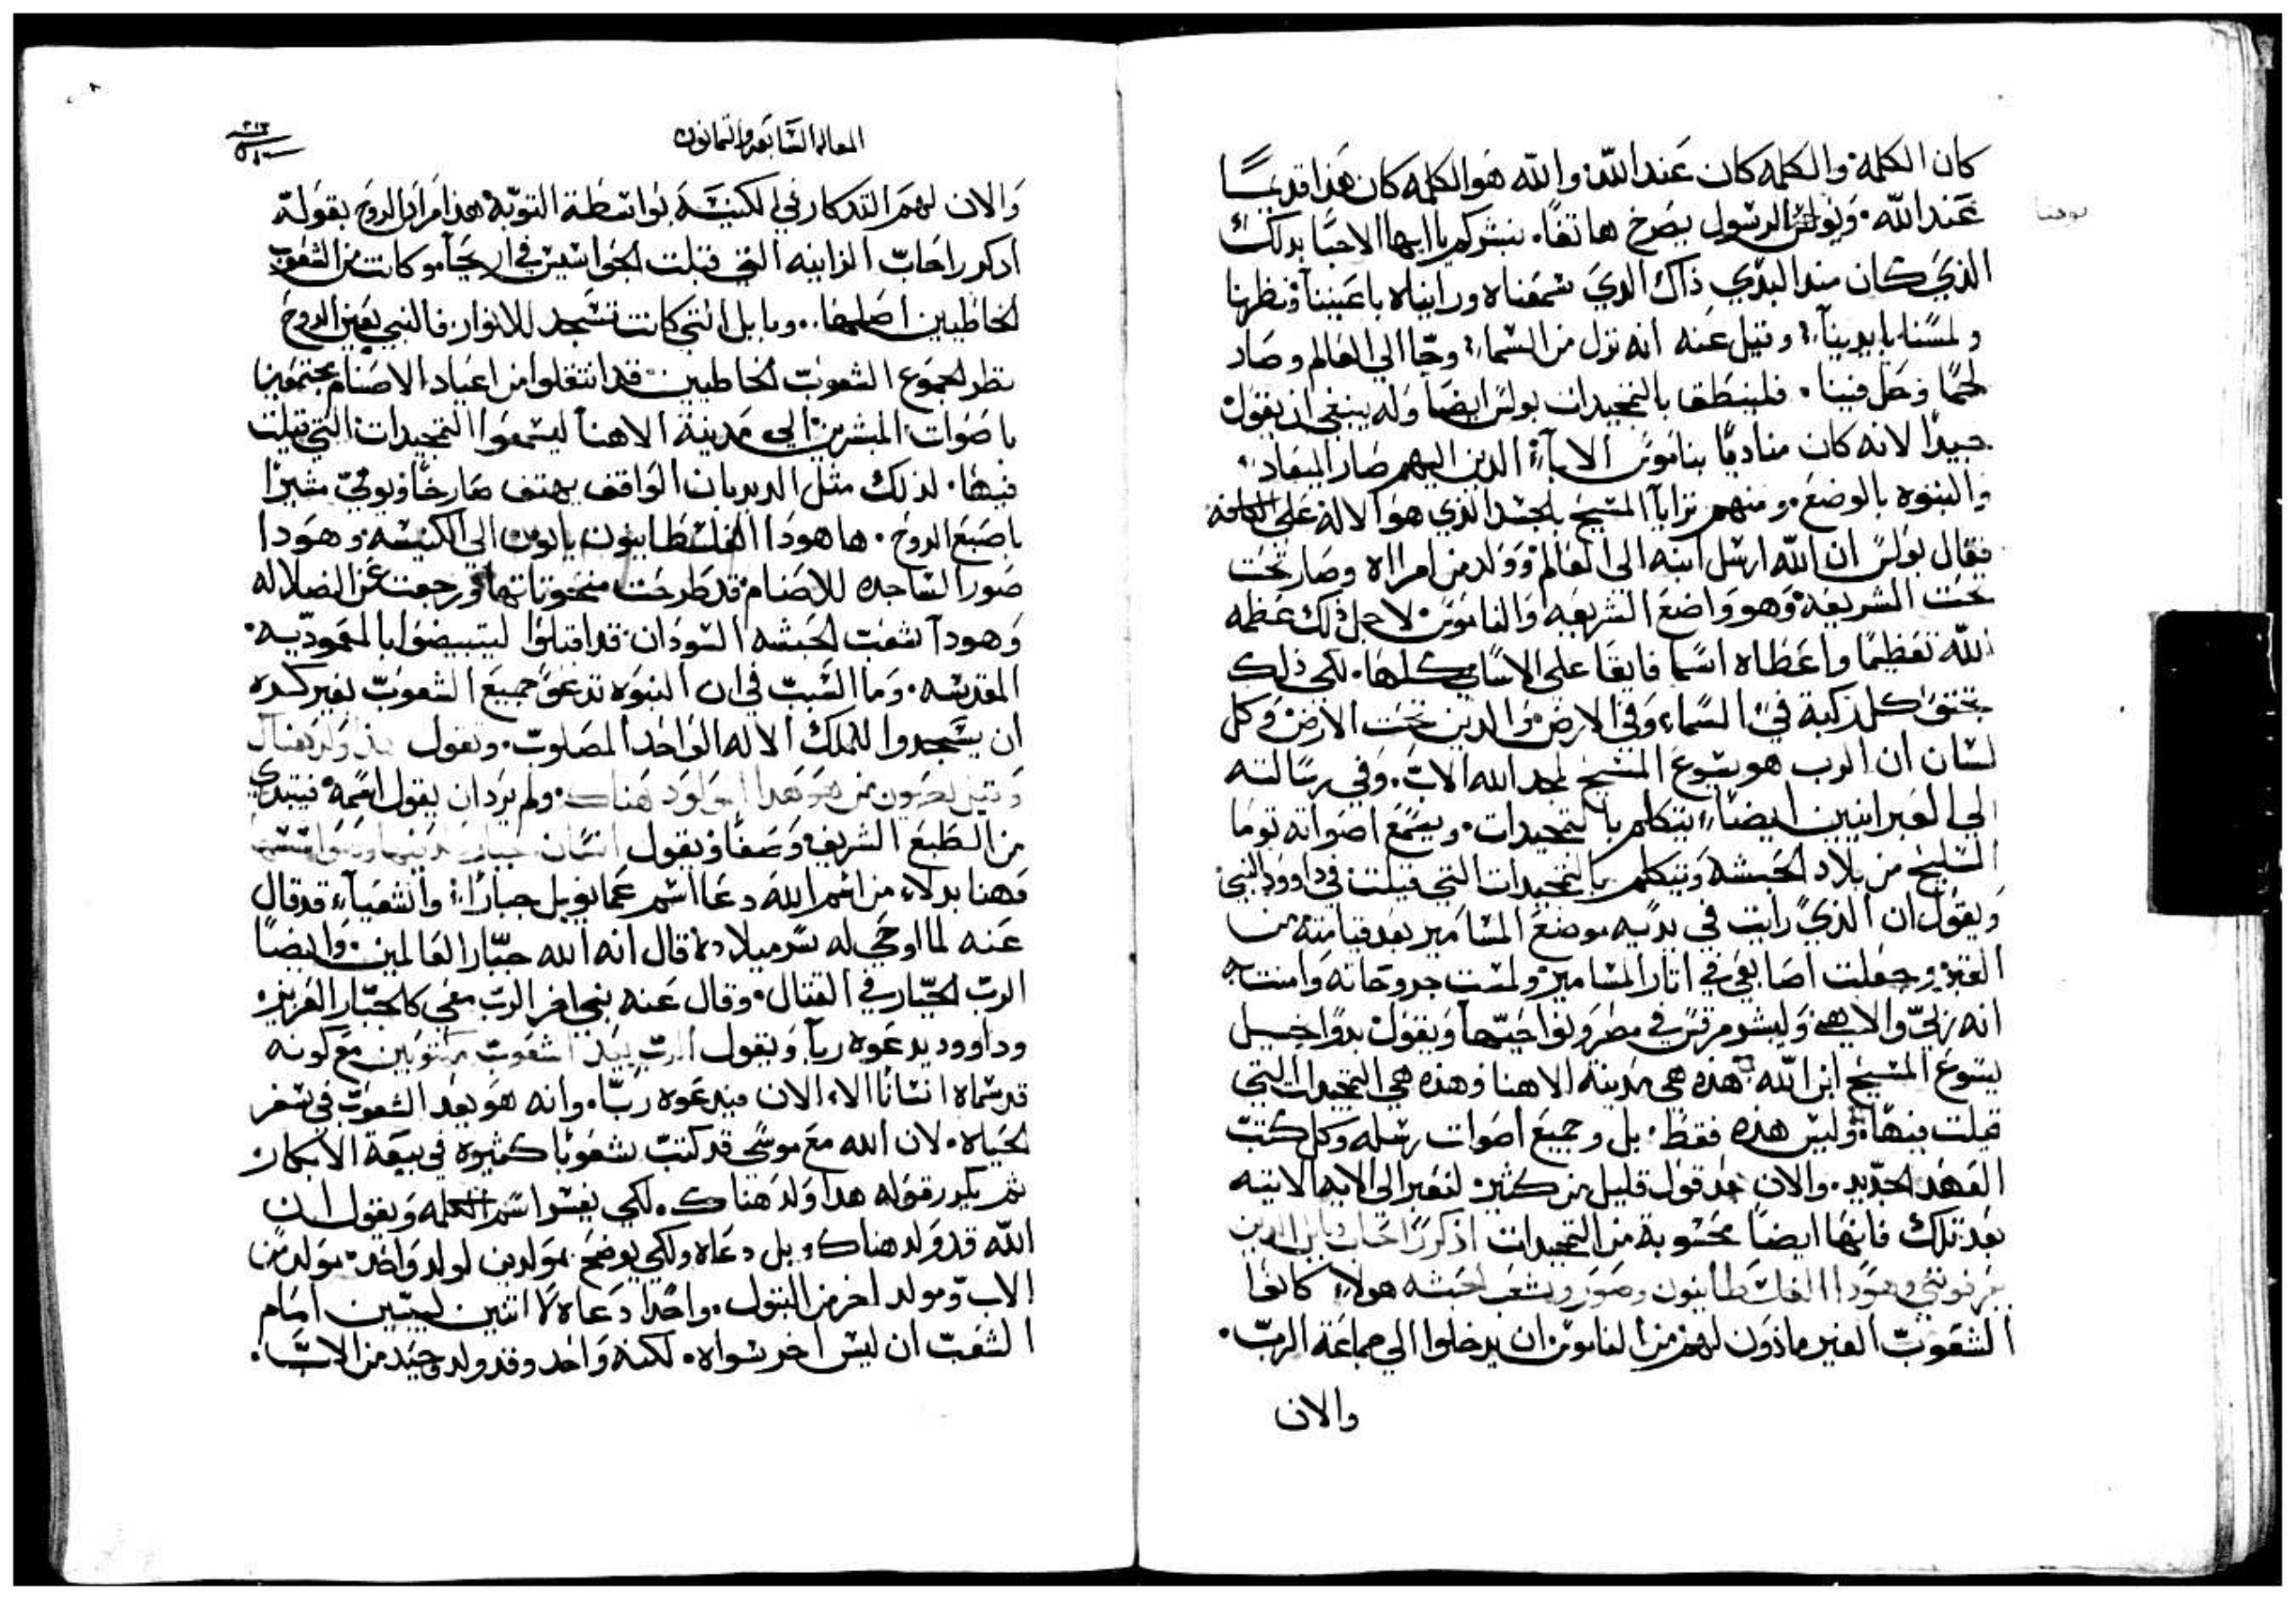 كان الكلمة والكلمه كان عند الله والله هو الكلمه كان هذا قديمًا
يوحنا
عند الله. وبولس الرسول يصرخ هاتفًا. نبشركم يا ايها الاحبا بدلك
الذي كان مند البدي ذاك الدي سمعناه ورايناه باعيننا ونظرنا
ولمسنا بايدينا. وقيل عنه انه نزل من السماء وجا الي العالم وصار
لحمًا وحل فينا. فلينطق بالتمجيدات بولس ايضًا وله ينبغي ان يقول
جيدًا لانه كان مناديًا بناموس الاباء الدين اليهم صار الميعاد
والبنوه بالوضع. ومنهم تراياٱ المسيح بالجسد الذي هو الاله على الكافه
فقال بولس ان الله ارسل ابنه الى العالم وولد من امراه وصار تحت
تحت الشريعة وهو واضع الشريعه والناموس لاجل ذلك عظمه
الله تعظيمًا واعطاه اسما فايقا على الاسامي كلها. لكي ذلك
تجتوا كل ركبة في السماء وفي الارض والدين تحت الارض وكل
لسان ان الرب هو يسوع المسيح لمجد الله الاب. وفي رسالته
الي العبرانيين ايضًا يتكلم بالتمجيدات. ويسمع اصواته توما
السليح من بلاد الحبشه ويتكلم بالتمجيدات التي قيلت في داوود النبي
ويقول ان الذي رايت في يديه موضع المسامير بعد قيامته من
القبر وجعلت اصابعي في اتار المسامير ولمست جروحاته وامنت به
انه ربي والاهي وليشو مرقس في مصر ونواحيها ويقول بدو انجيل
يسوع المسيح ابن الله هذه هي مدينة الاهنا وهذه هي التمجيدات التي
قيلت فيها. وليس هذه فقط. بل وجميع اصوات رسله وكل كتب
العهد الجديد. والان خد قول قليل من كثير لنعبر الى الايه الاتيه
بعد تلك فانها ايضًا محسوبة من التمجيدات اذكر راحاب وبابل الدين
يعرفونني وهودا الفلسطانيون وصور وشعب الحبشه هولاء كانوا
الشعوب الغير مادون لهم من الناموس ان يدخلوا الي جماعة الرب.
والان
المقاله السابعه والتمانون
٣١٣
والان لهم التدكار في الكنيسه بواسطة التوبة هدا امر ايا الروح بقوله
ادكر راحاب الزانيه التي قبلت الجواسيس في اريحا وكانت من الشعوب
الخاطيين اصلها.. وبابل التي كانت تسجد للانوار. فالنبي بعين الروح
نظر لجموع الشعوب الخاطيين قد انتقلوا من اعياد الاصنام مجتمعين
باصوات المبشرين الي مدينة الاهنا ليسمعوا التمجيدات التي قيلت
فيها. لدلك مثل الديدبان الواقف يهتف صارخًا ويومي مشيرًا
باصبع الروح. ها هودا الفلسطانيون ياتون الي الكنيسه. وهودا
صور الساجده للاصنام قد طرحت منحوتاتها ورجعت عن الضلاله
وهودا شعب الحبشه السودان قد اقبلوا ليتبيضوا بالمعموديه.
المقدسه. وما السبب في ان النبوه تدعو جميع الشعوب بغير كده
ان يسجدوا للملك الاله الواحد المصلوب. وتقول هذا ولد هناك
هو هدا المولود هناك. ولم يرد ان يقول امه فيبتدي
من الطبع الشريف وصفا ويقول انسان جبار
وهنا بدلاء من اسم الله دعا اسم عمانويل جبارًا. واشعياء قد قال
عنه لما اوحي له سر ميلاده قال انه الله جبار العالمين. وايضًا
الرب الجبار في القتال. وقال عنه نبي اخر الرب معي كالجبار العزيز
وداوود يدعوه ربآ ويقول الرب يعد الشعوب مكتوبين مع كونه
قد سماه انسانا الاء الان فيدعوه ربًا. وانه هو يعد الشعوب في سفر
الحياه. لان الله مع موسى قد كتب شعوبا كثيره في بيعة الابكار
ثم يكرر قوله هدا ولد هناك. لكي يفسر اسم الكلمه ويقول ان
الله قد ولد هناك وبل دعاه ولكي يوضح بمولدين لولد واحد. مولد من
الاب ومولد اخر من البتول. واحدًا دعاه لا اثنين ليبين امام
الشعب ان ليس اخر سواه. لكنه واحد وقد ولد جيد من الاب.